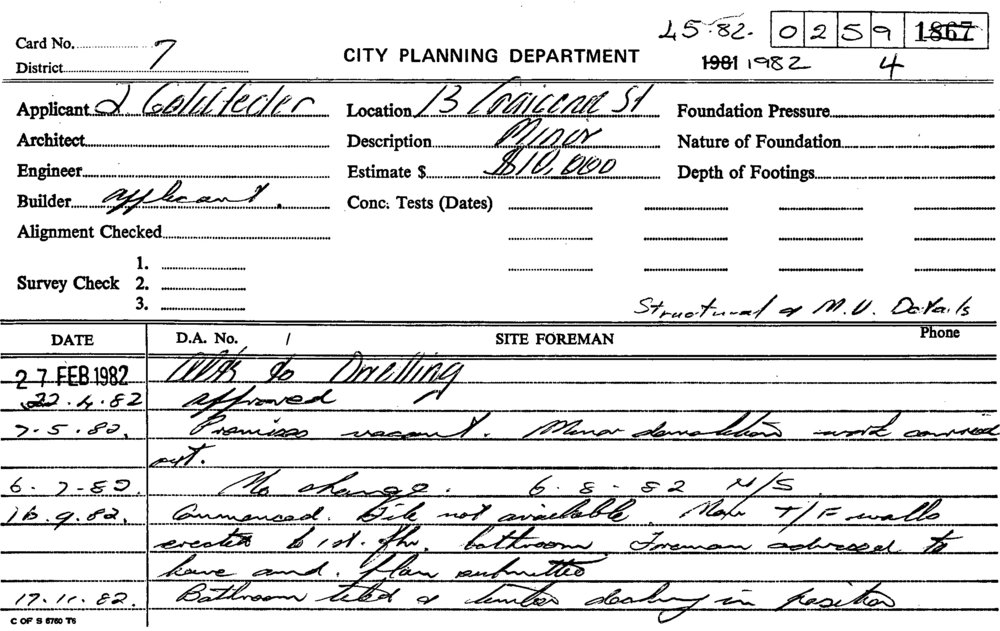 45.82. 0259 1867
Card No. 7
District
CITY PLANNING DEPARTMENT
1981 1982 4
Applicant J Goldfeder Location 13 Craigend St Foundation Pressure
Architect Description Minor Nature of Foundation
Engineer Estimate $ $10,000 Depth of Footings
Builder applicant. Conc. Tests (Dates)
Alignment Checked
1.
Survey Check 2.
3.
Structural & M.V. Details
DATE D.A. No. / SITE FOREMAN Phone
27 FEB 1982 Alts to Dwelling
22.4.82 approved
7.5.82. Premises vacant. Minor demolition work carried
out.
6.7.82. No change. 6.8.82 N/S.
16.9.82. Commenced. File not available. New T/F walls
erected to 1st. flr. bathroom Foreman advised to
have amd. plan submitted
17.11.82. Bathroom tiled & timber decking in position
C OF S 6760 T6